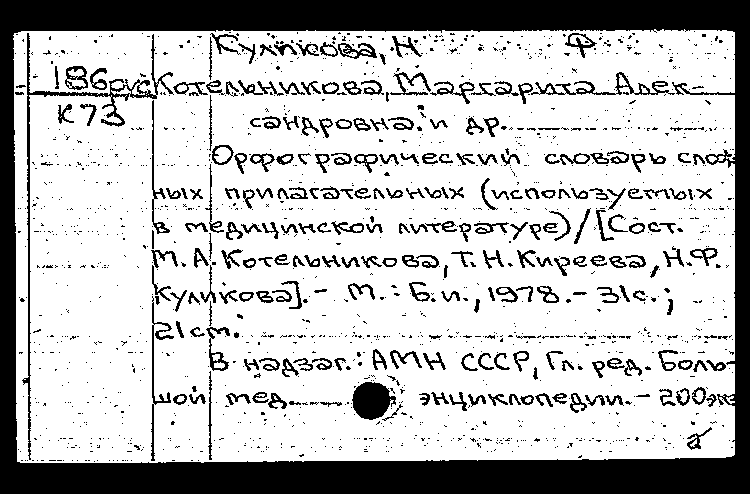 Куликова, Н Ф
186рус Котельникова, Маргарита Алек-
К73 сандровна и др.
Орфографический словарь слож
ных прилагательных (используемых
в медицинской литературе)/[Сост.
М.А. Котельникова, Т.Н. Киреева, Н.Ф.
Куликова]. - М.: Б.и., 1978. - 31с.;
21 см.
В надзаг.: АМН СССР, Гл. ред. Боль-
шой мед. энциклопедии. - 200экз
а